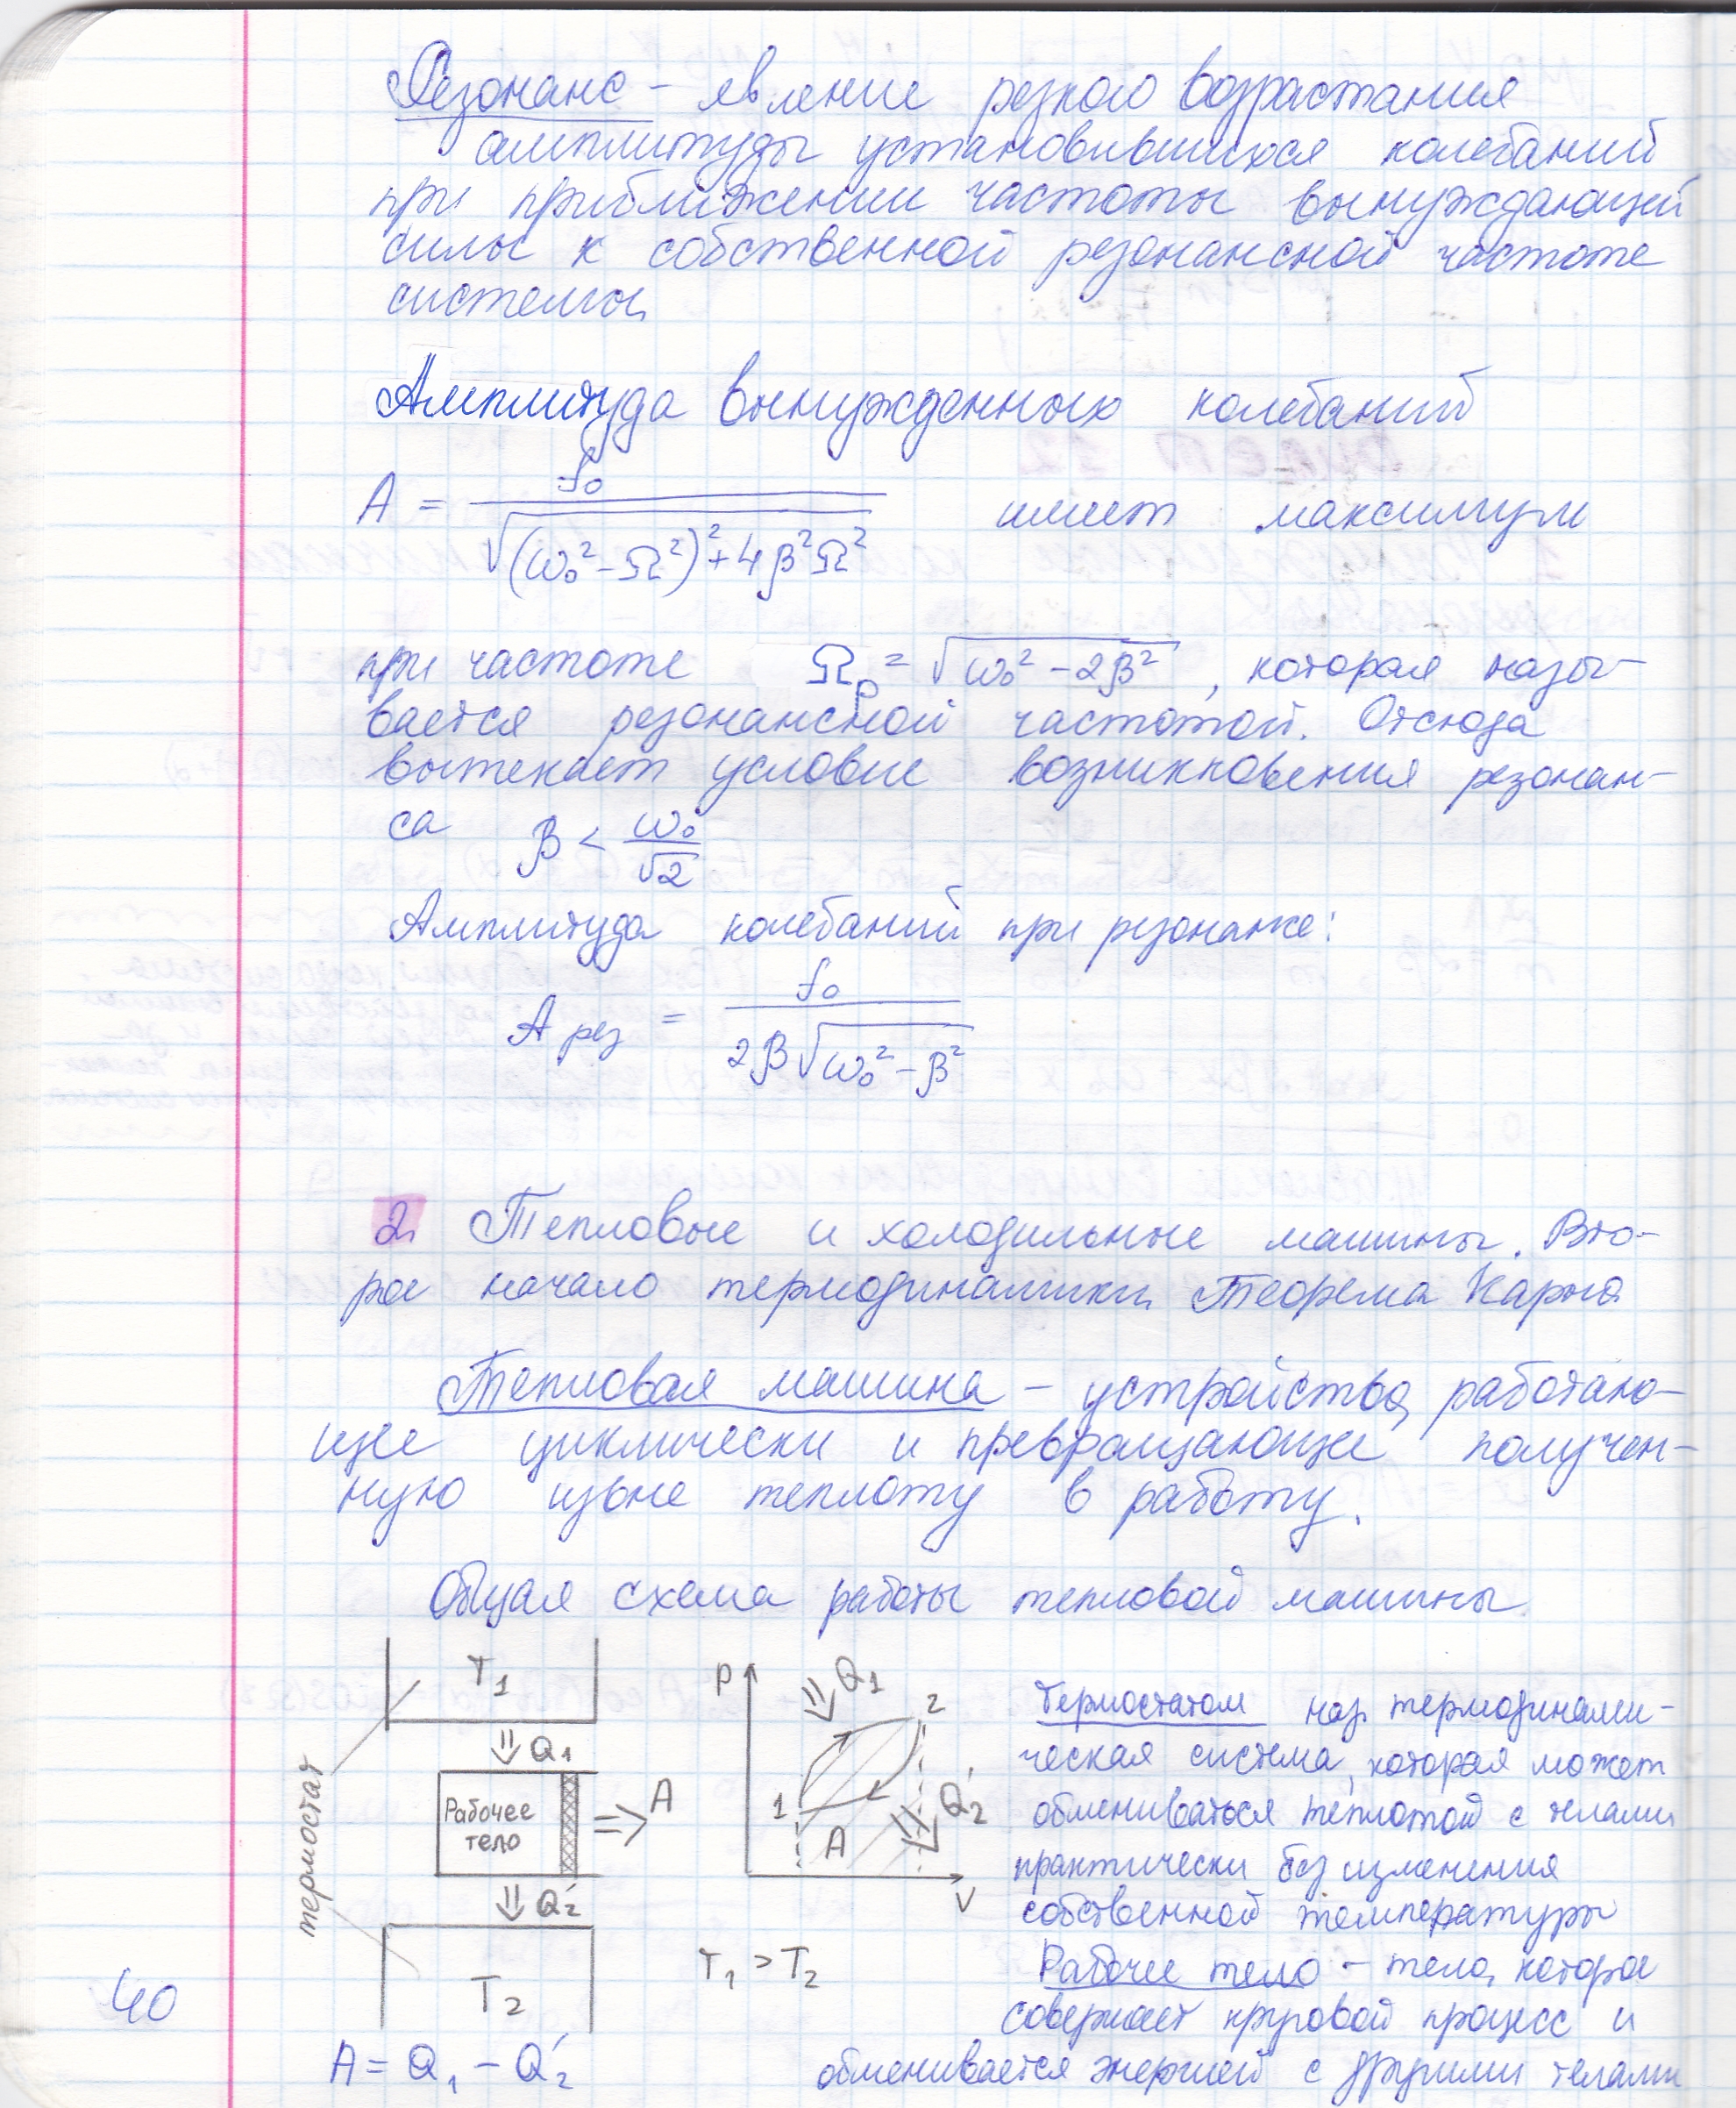 Резонанс - явление резкого возрастания
амплитуды установившихся колебаний
при приближении частоты вынуждающей
силы к собственной резонансной частоте
системы.
Амплитуда вынужденных колебаний
A = f₀ / √((ω₀² - Ω²)² + 4β²Ω²) имеет максимум
при частоте Ωр = √(ω₀² - 2β²), которая назы-
вается резонансной частотой. Отсюда
вытекает условие возникновения резонан-
са β < ω₀/√2
Амплитуда колебаний при резонансе:
A рез = f₀ / (2β√(ω₀² - β²))
2. Тепловые и холодильные машины. Вто-
рое начало термодинамики. Теорема Карно
Тепловая машина - устройство, работаю-
щее циклически и превращающее получен-
ную извне теплоту в работу.
Общая схема работы тепловой машины
термостат
T₁
Q₁
Рабочее
тело
A
Q₂'
T₂
A = Q₁ - Q₂'
P
Q₁
2
1
A
Q₂'
V
T₁ > T₂
Термостатом наз. термодинами-
ческая система, которая может
обмениваться теплотой с телами
практически без изменения
собственной температуры
Рабочее тело - тело, которое
совершает круговой процесс и
обменивается энергией с другими телами
40